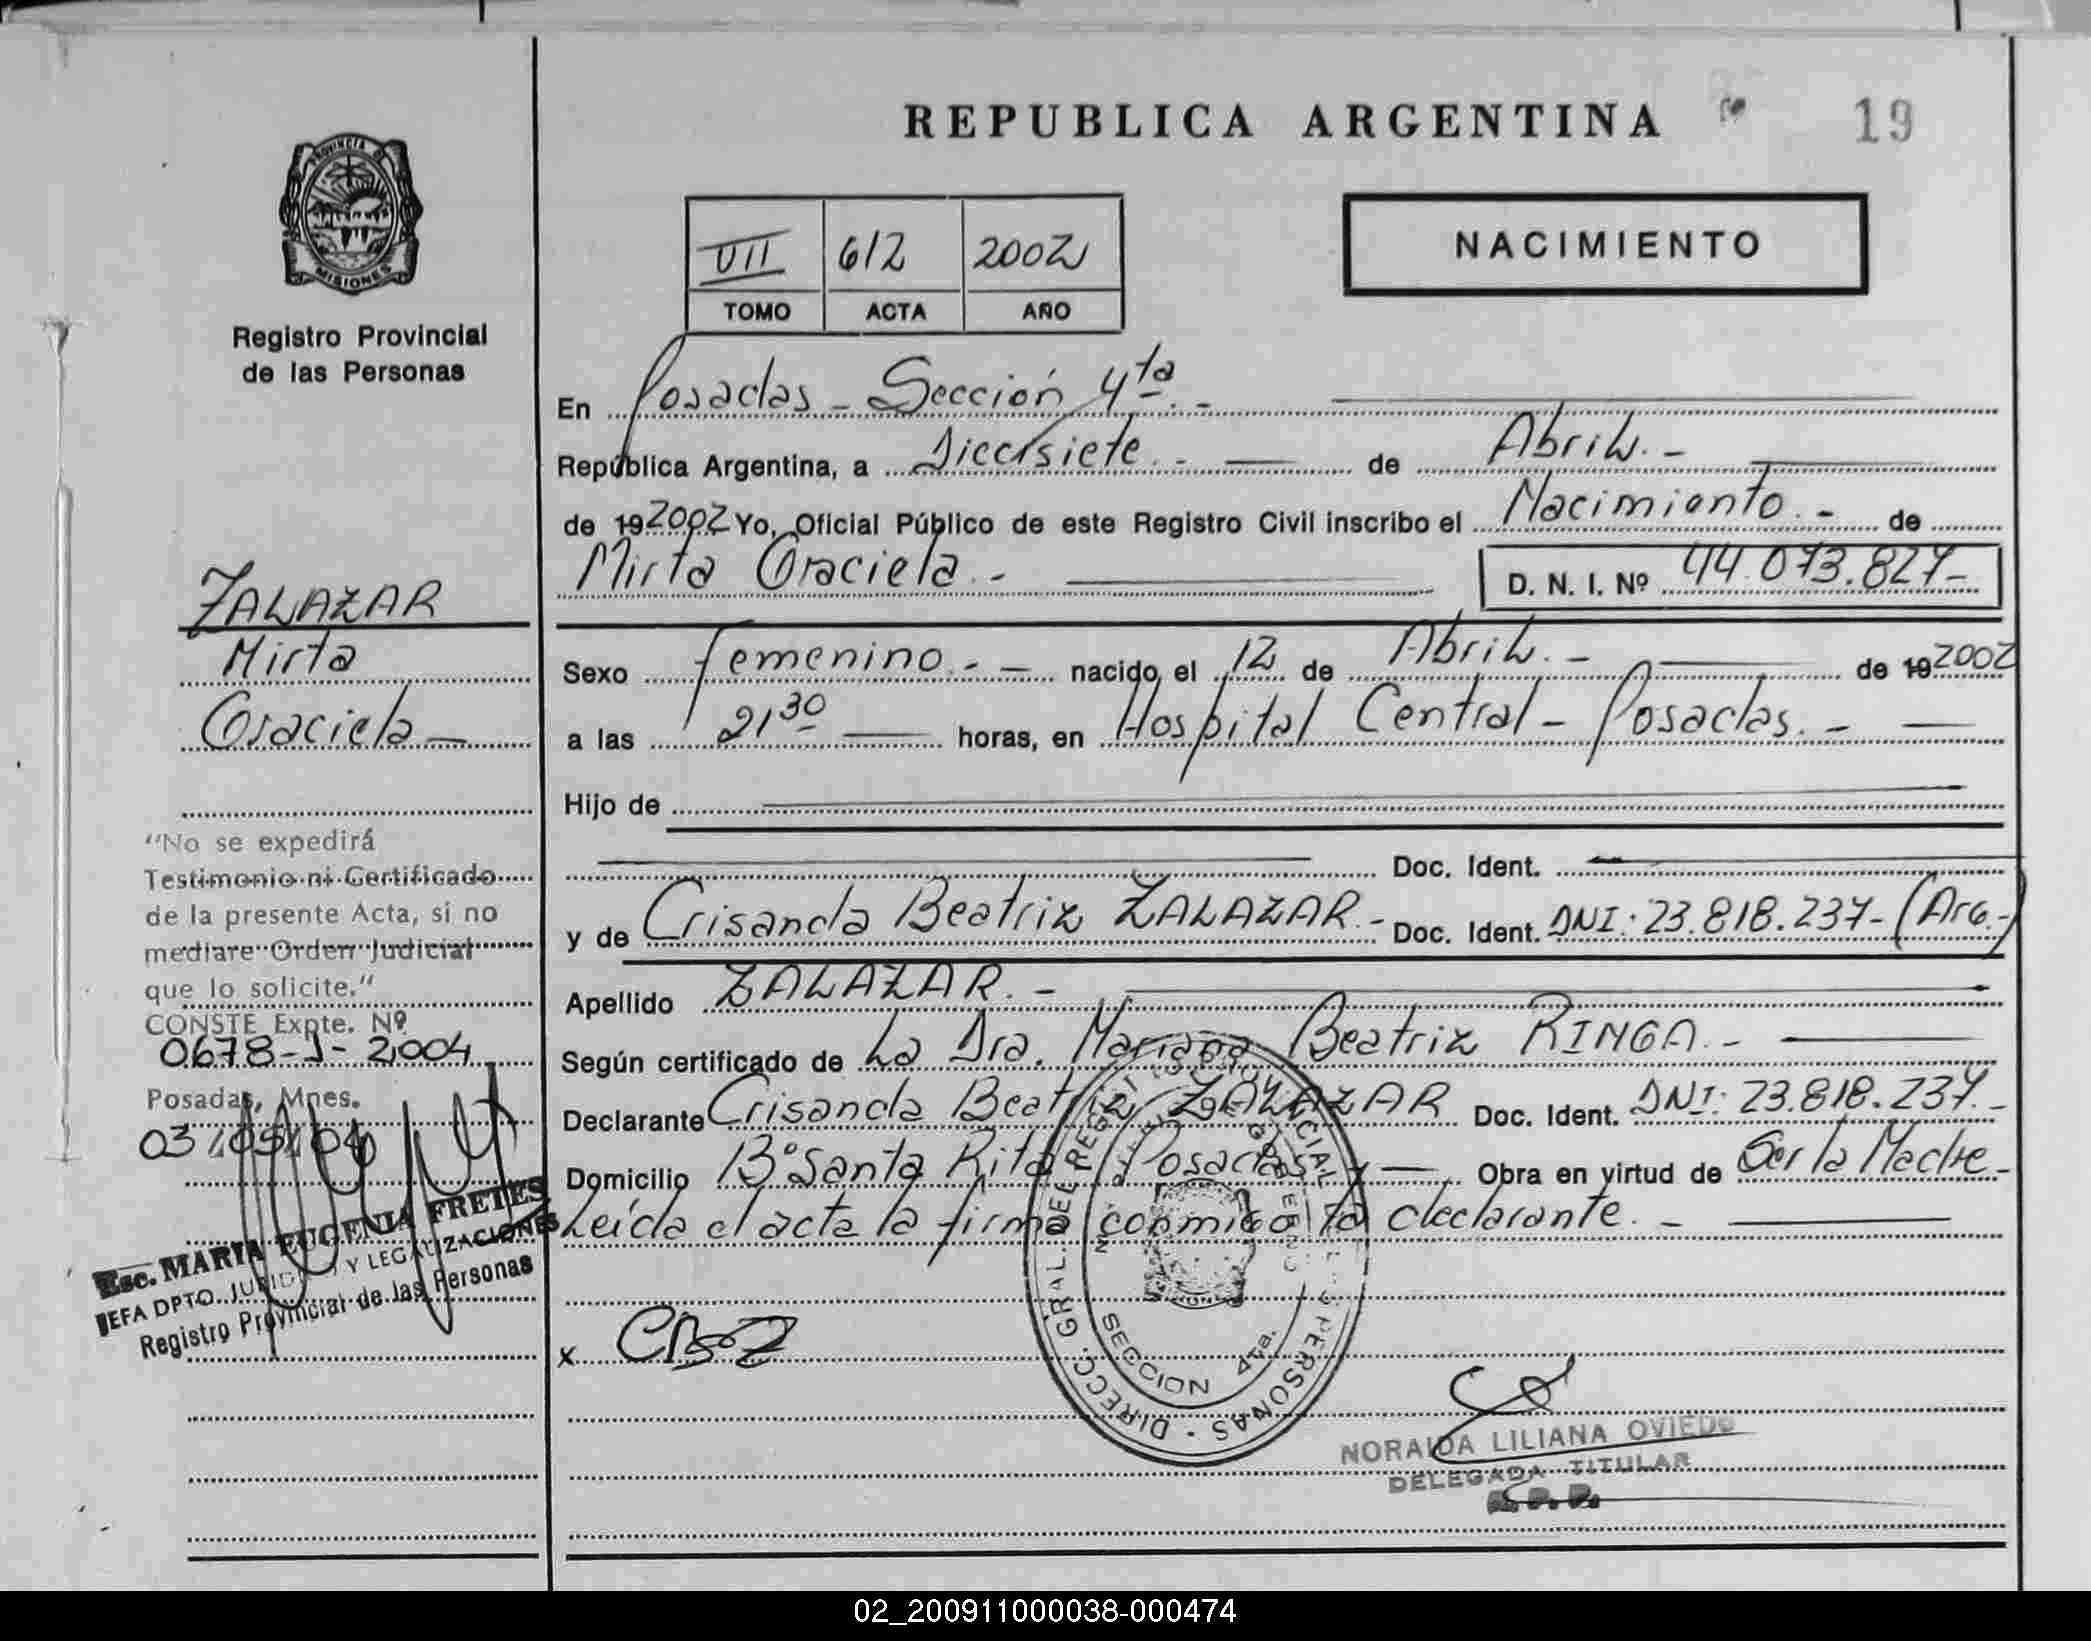 REPUBLICA ARGENTINA
19
PROVINCIA DE
MISIONES
Registro Provincial
de las Personas
VII 612 2002
TOMO ACTA AÑO
NACIMIENTO
En Posadas - Sección 4ta. -
República Argentina, a Diecisiete. - de Abril. -
de 19 2002 Yo, Oficial Público de este Registro Civil inscribo el Nacimiento. - de
Mirta Graciela. - D. N. I. Nº 44.073.827-
ZALAZAR
Mirta
Graciela
Sexo femenino. - nacido el 12 de Abril. - de 19 2002
a las 21 30 horas, en Hospital Central - Posadas. -
Hijo de
Doc. Ident.
y de Crisanda Beatriz ZALAZAR. - Doc. Ident. DNI: 23.818.237- (Arg.-)
Apellido ZALAZAR. -
Según certificado de La Dra. Mariana Beatriz RINGA. -
Declarante Crisanda Beatriz ZALAZAR Doc. Ident. DNI: 23.818.237. -
Domicilio Bº Santa Rita Posadas Obra en virtud de Ser la Madre -
Leída el acta la firma conmigo la declarante. -
"No se expedirá
Testimonio ni Certificado
de la presente Acta, si no
mediare Orden Judicial
que lo solicite."
CONSTE Expte. Nº
0678-J-2004
Posadas, Mnes.
03/05/04
Esc. MARIA EUGENIA FRETES
JEFA DPTO. JURIDICO Y LEGALIZACIONES
Registro Provincial de las Personas
x CBZ
DIRECC. GRAL. DEL REGISTRO PROVINCIAL DE LAS PERSONAS
SECCION 4ta.
NORAIDA LILIANA OVIEDO
DELEGADA TITULAR
R. P. P.
02_200911000038-000474